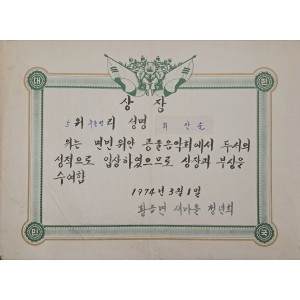 대
한
상장
5위 리 성명 최
위는 면민 위안 콩쿨음악회에서 두서의
성적으로 입상하였으므로 상장과 부상을
수여함
1974年 3월 1일
황등면 새마을 청년회
민
국